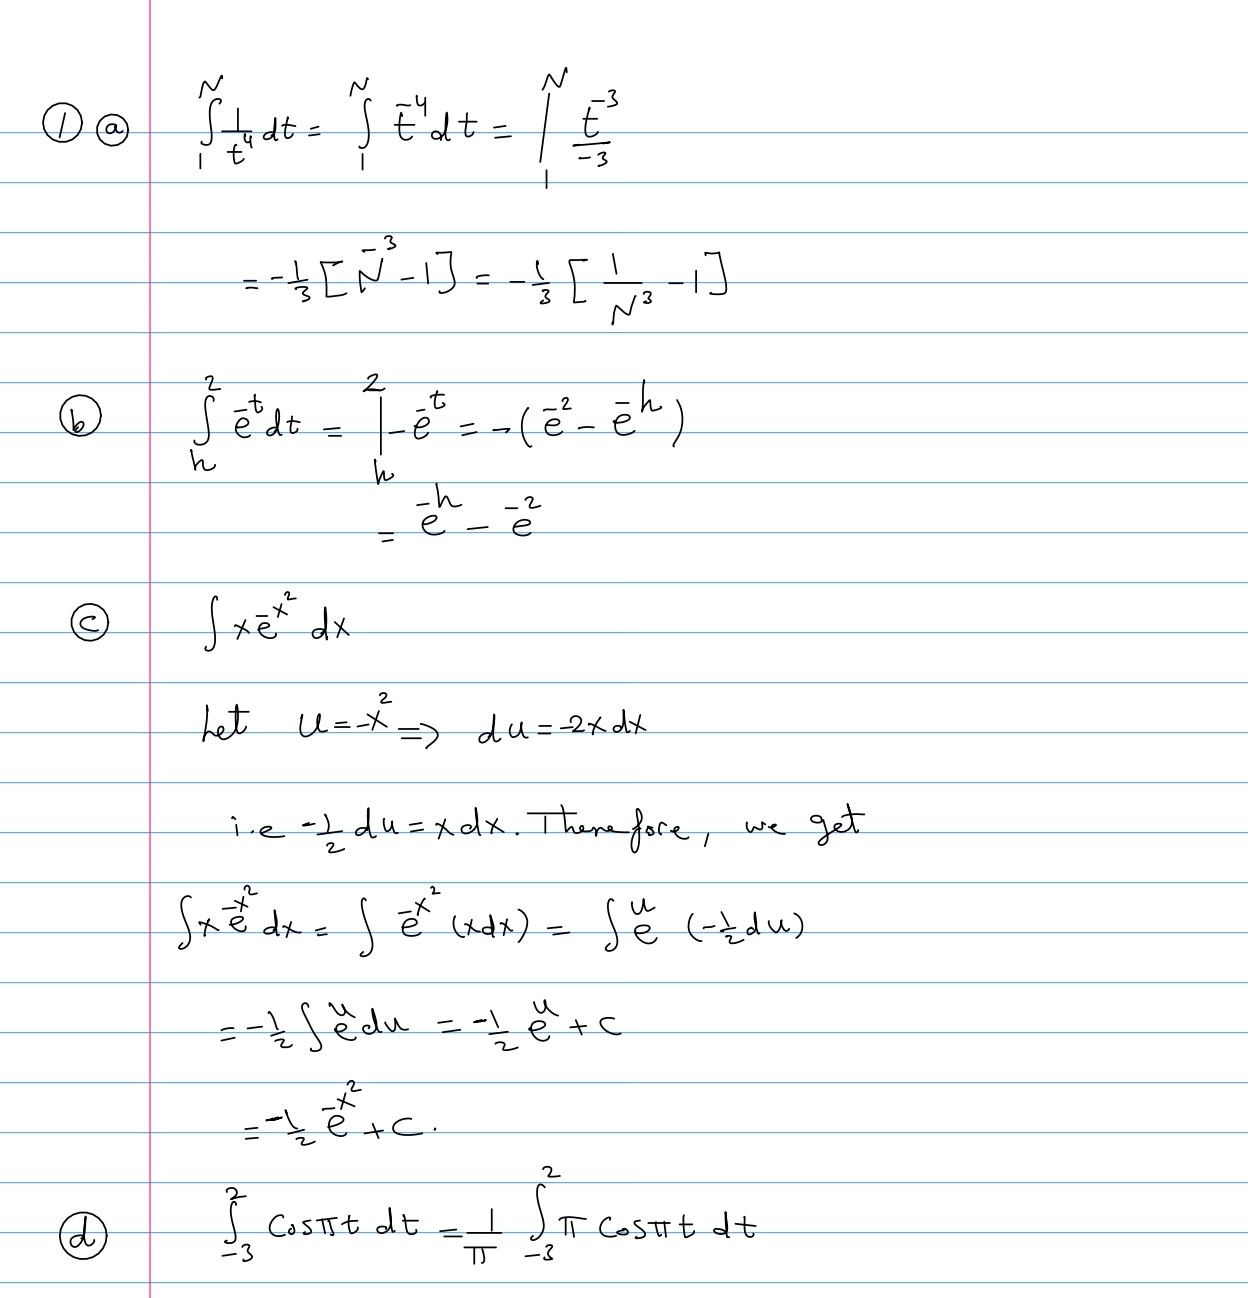 ① ⓐ ∫₁ᴺ 1/t⁴ dt = ∫₁ᴺ t⁻⁴ dt = |₁ᴺ t⁻³/-3
= -1/3 [N⁻³ - 1] = -1/3 [1/N³ - 1]
ⓑ ∫ₕ² e⁻ᵗ dt = |ₕ² -e⁻ᵗ = -(e⁻² - e⁻ʰ)
= e⁻ʰ - e⁻²
ⓒ ∫ x e^(-x²) dx
Let u = -x² => du = -2x dx
i.e -1/2 du = x dx. Therefore, we get
∫ x e^(-x²) dx = ∫ e^(-x²) (x dx) = ∫ eᵘ (-1/2 du)
= -1/2 ∫ eᵘ du = -1/2 eᵘ + C
= -1/2 e^(-x²) + C.
ⓓ ∫₋₃² Cosπt dt = 1/π ∫₋₃² π Cosπt dt